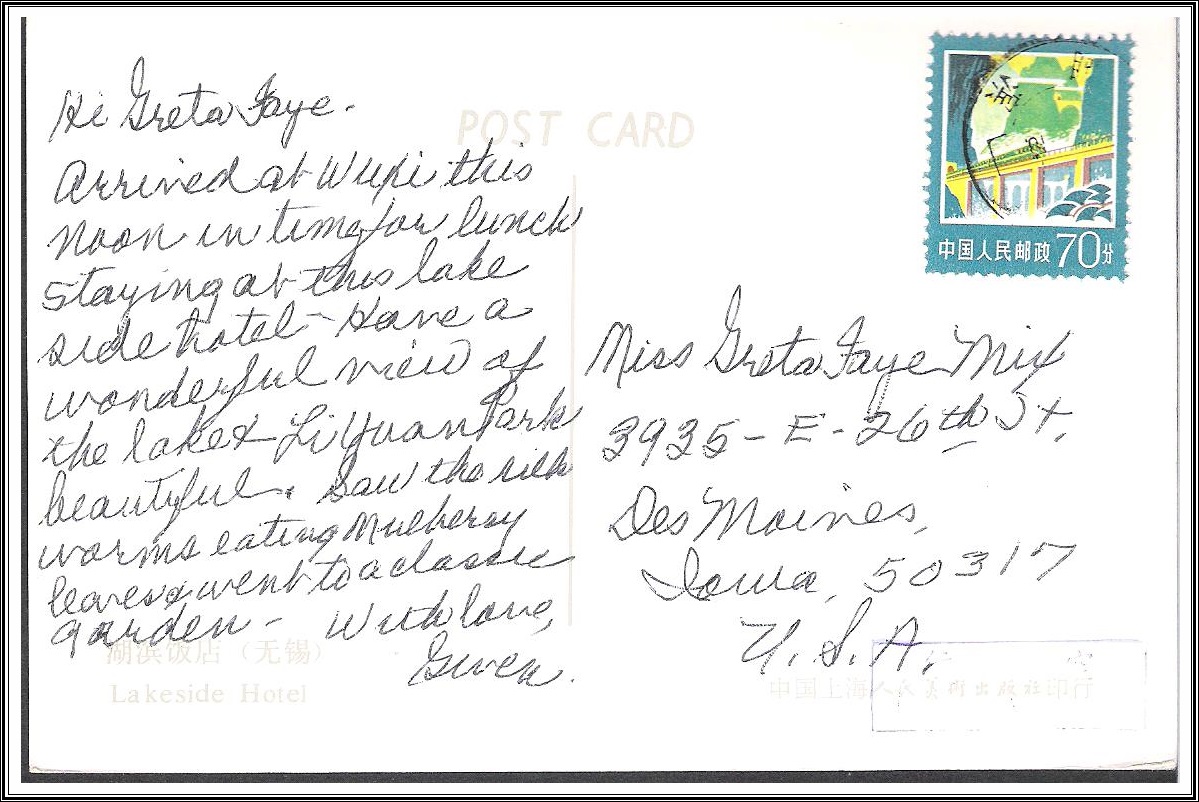 POST CARD
Hi Greta Faye -
Arrived at Wuxi this
Noon in time for lunch
staying at this lake
side hotel - Have a
wonderful view of
the lake & Li Yuan Park
beautiful. Saw the silk
worms eating Mulberry
leaves & went to a classic
garden - With love,
Gwen.
湖滨饭店（无锡）
Lakeside Hotel
中国人民邮政 70分
Miss Greta Faye Mix
3935 - E - 26th St.
Des Moines,
Iowa, 50317
U.S.A.
中国上海人民美術出版社印行